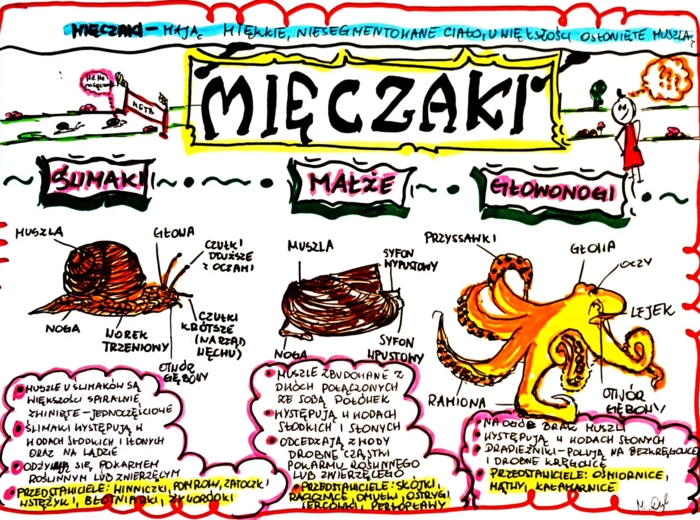 MIĘCZAKI – MAJĄ MIĘKKIE, NIESEGMENTOWANE CIAŁO, U WIĘKSZOŚCI OSŁONIĘTE MUSZLĄ
META
MIĘCZAKI
ŚLIMAKI
MAŁŻE
GŁOWONOGI
MUSZLA
GŁOWA
CZUŁKI
DŁUŻSZE
Z OCZAMI
CZUŁKI
KRÓTSZE
(NARZĄD
WĘCHU)
NOGA
WOREK
TRZEWIOWY
OTWÓR
GĘBOWY
MUSZLA
SYFON
WPUSTOWY
SYFON
WPUSTOWY
NOGA
PRZYSSAWKI
GŁOWA
OCZY
LEJEK
OTWÓR
GĘBOWY
RAMIONA
• MUSZLE U ŚLIMAKÓW SĄ
WIĘKSZOŚCI SPIRALNIE
ZWINIĘTE – JEDNOCZĘŚCIOWE
• ŚLIMAKI WYSTĘPUJĄ W
WODACH SŁODKICH I SŁONYCH
ORAZ NA LĄDZIE
• ODŻYWIAJĄ SIĘ POKARMEM
ROŚLINNYM LUB ZWIERZĘCYM
• PRZEDSTAWICIELE: WINNICZKI, POMROW, ZATOCZKI
WSTĘŻYKI, BŁOTNIARKI, ŻYWORODKI
• MUSZLE ZBUDOWANE Z
DWÓCH POŁĄCZONYCH
ZE SOBĄ POŁÓWEK
• WYSTĘPUJĄ W WODACH
SŁODKICH I SŁONYCH
• ODCEDZAJĄ Z WODY
DROBNE CZĄSTKI
POKARMU ROŚLINNEGO
LUB ZWIERZĘCEGO
• PRZEDSTAWICIELE: SKÓJKI,
RACICZNICE, OMUŁKI, OSTRYGI
SERCÓWKI, PERŁOPŁAWY
• NA OGÓŁ BRAK MUSZLI
• WYSTĘPUJĄ W WODACH SŁONYCH
• DRAPIEŻNIKI – POLUJĄ NA BEZKRĘGOWCE
I DROBNE KRĘGOWCE
• PRZEDSTAWICIELE: OŚMIORNICE,
MĄTWY, KAŁAMARNICE